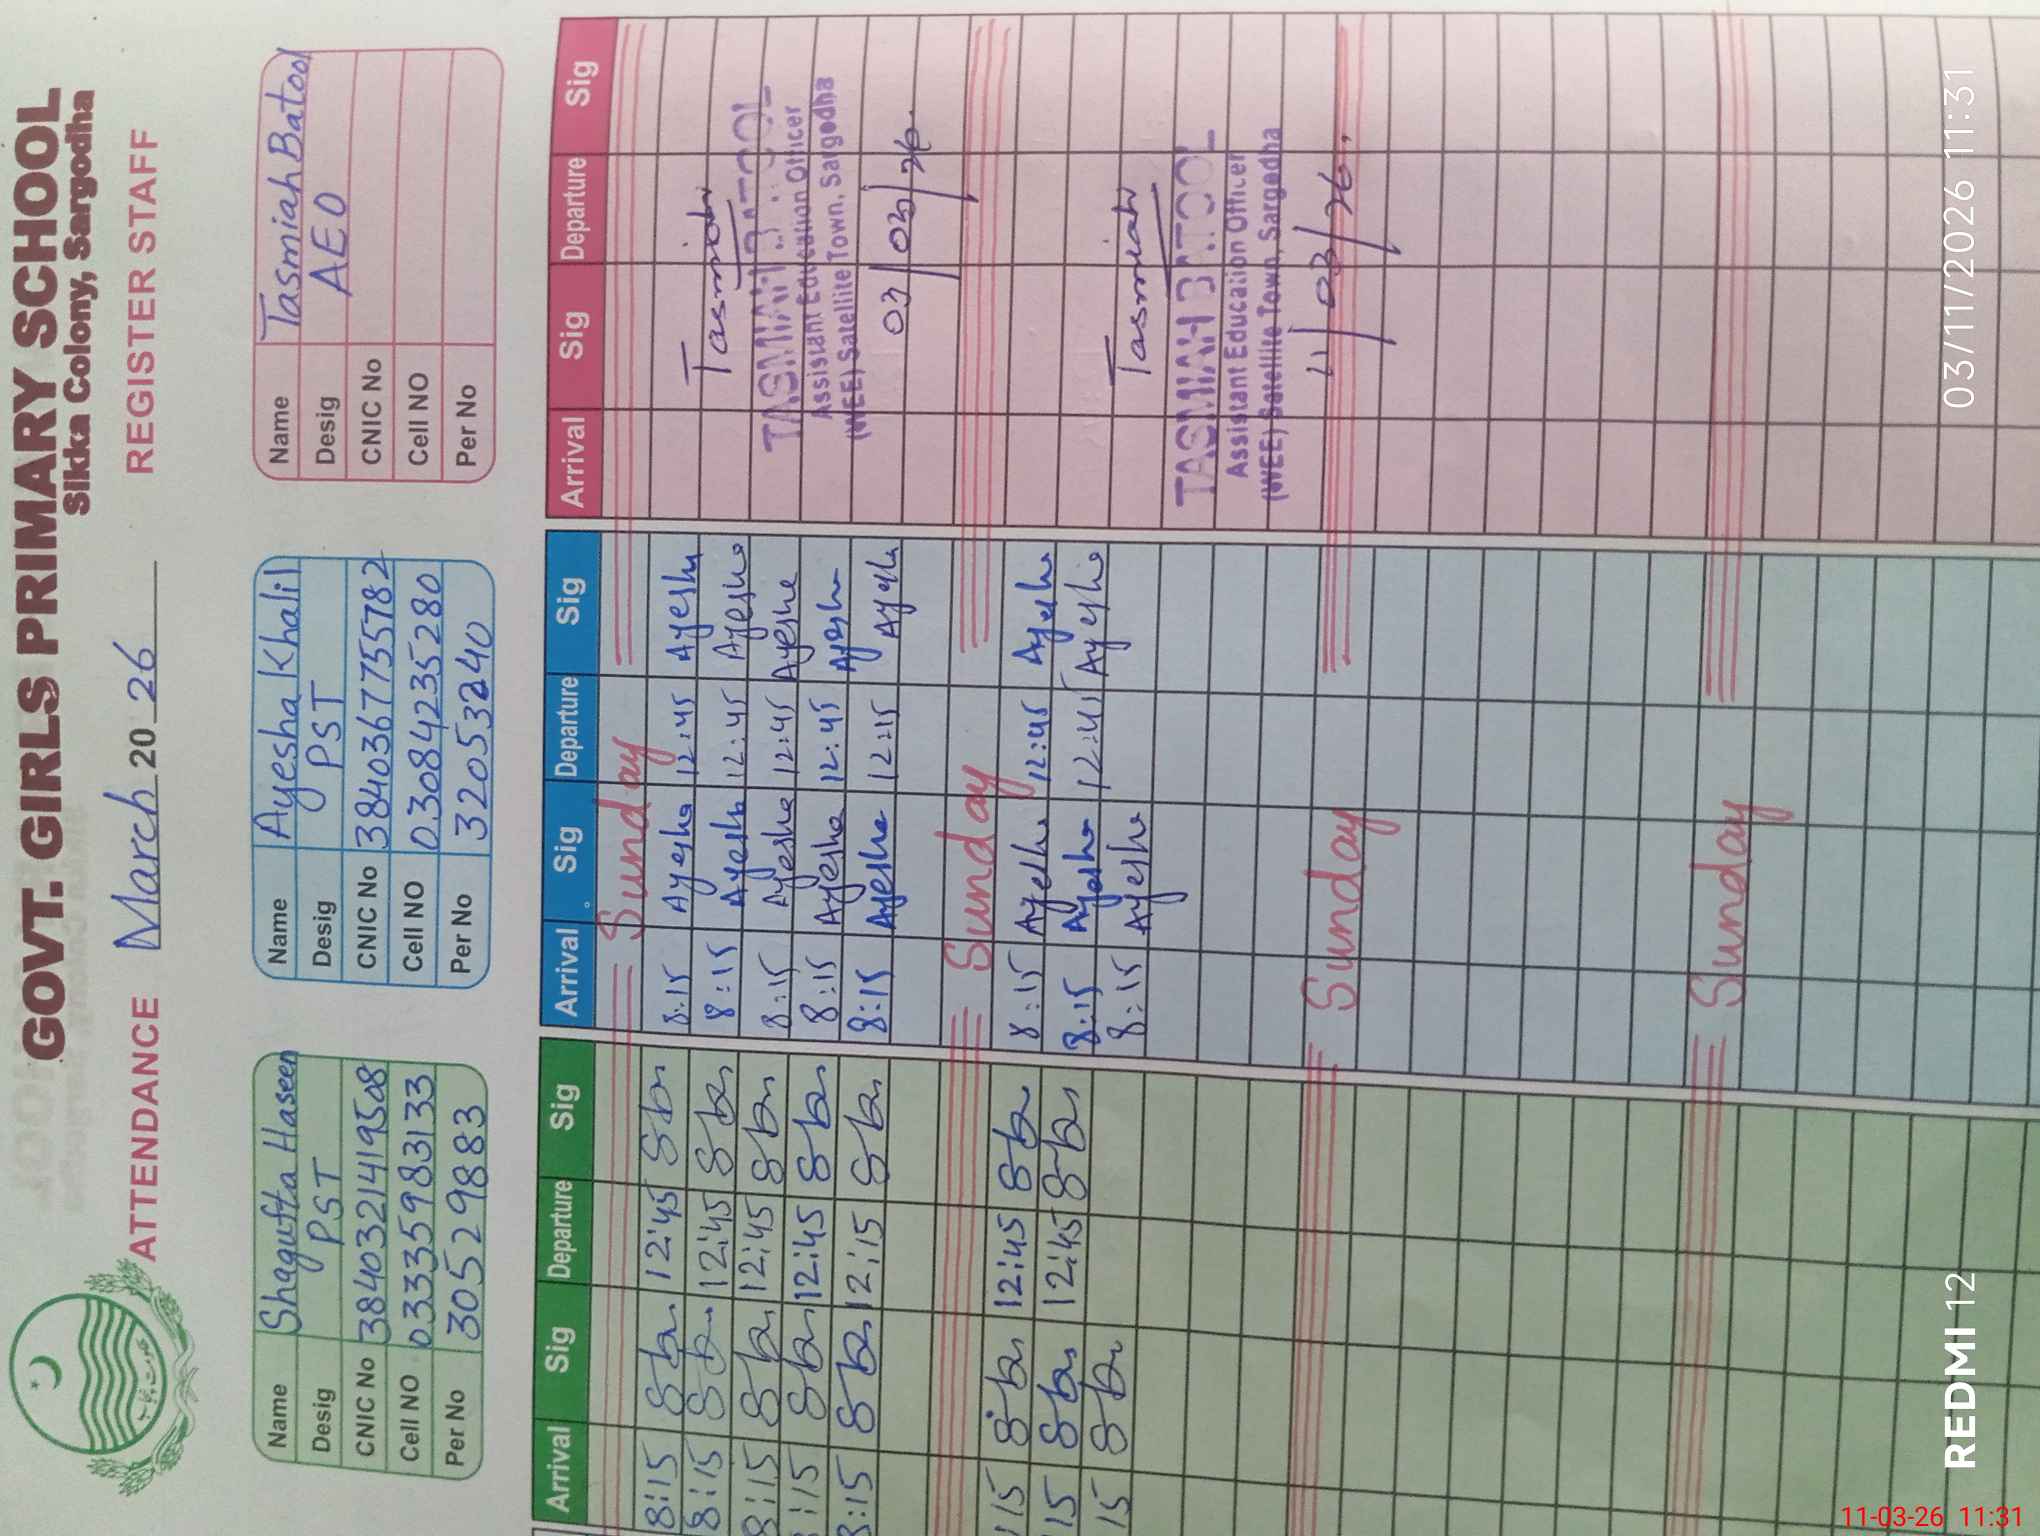 GOVT. GIRLS PRIMARY SCHOOL
Sikka Colony, Sargodha
ATTENDANCE March 20 26 REGISTER STAFF
Name Shagufta Haseen
Desig PST
CNIC No 3840321419508
Cell NO 03335983133
Per No 30529883
Name Ayesha Khalil
Desig PST
CNIC No 3840367755782
Cell NO 03084235280
Per No 32053240
Name Tasmiah Batool
Desig AEO
CNIC No
Cell NO
Per No
Arrival Sig Departure Sig Arrival Sig Departure Sig Arrival Sig Departure Sig
Sunday
8:15 12:45 8:15 Ayesha 12:45 Ayesha
8:15 12:45 8:15 Ayesha 12:45 Ayesha
8:15 12:45 8:15 Ayesha 12:45 Ayesha
:15 12:45 8:15 Ayesha 12:45 Ayesha
8:15 12:15 8:15 Ayesha 12:15 Ayesha
Tasmiah
TASMIAH BATOOL
Assistant Education Officer
(WEE) Satellite Town, Sargodha
03/03/26.
Sunday
:15 12:45 8:15 Ayesha 12:45 Ayesha
15 12:45 8:15 Ayesha 12:45 Ayesha
15 8:15 Ayesha
Tasmiah
TASMIAH BATOOL
Assistant Education Officer
(WEE) Satellite Town, Sargodha
11/03/26.
Sunday
Sunday
REDMI 12
03/11/2026 11:31
11-03-26 11:31